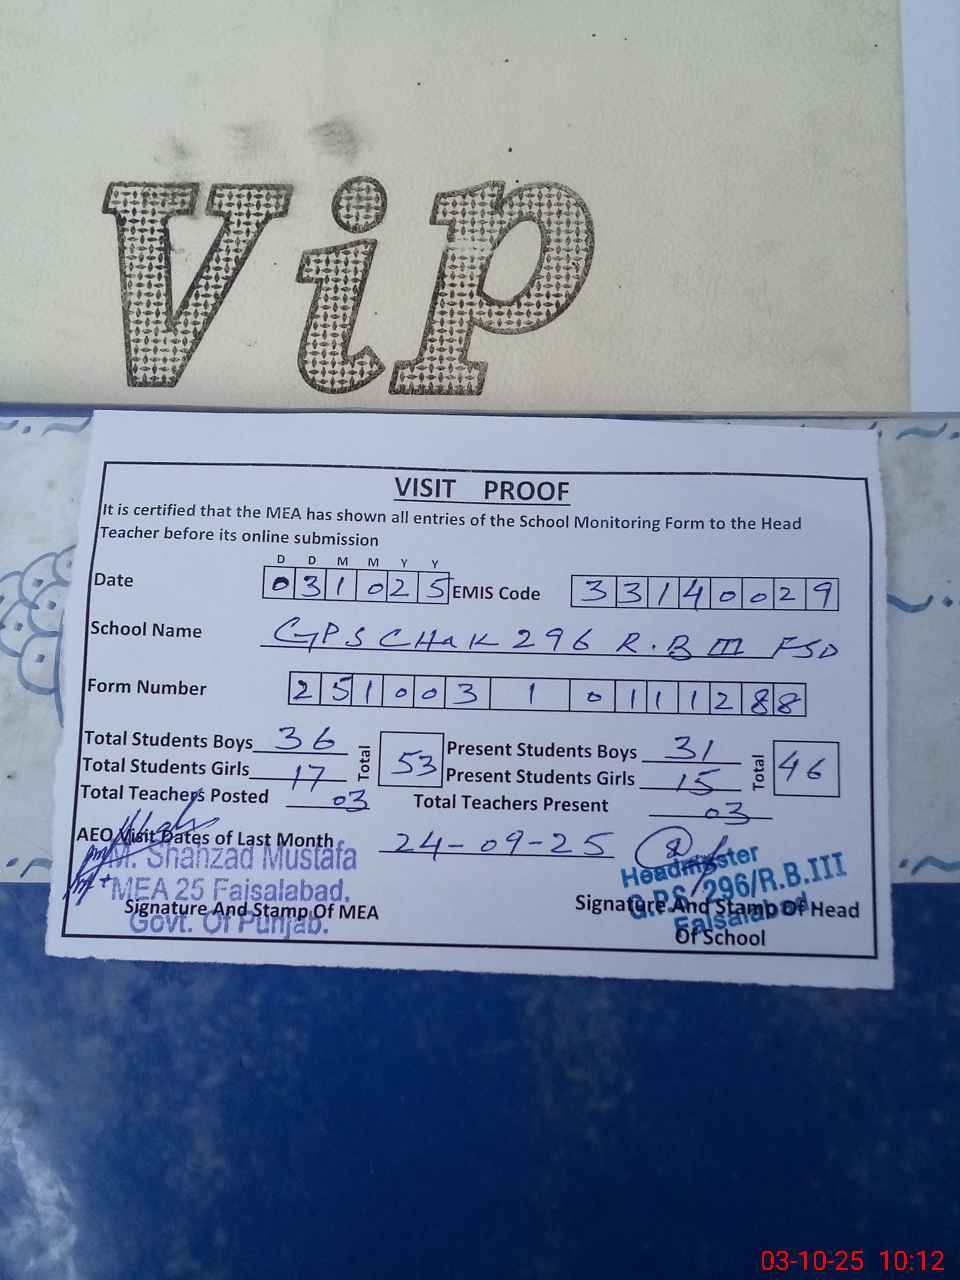 Vip
VISIT PROOF
It is certified that the MEA has shown all entries of the School Monitoring Form to the Head
Teacher before its online submission
D D M M Y Y
Date 031025 EMIS Code 33140029
School Name GPS CHaK 296 R.B III FSD
Form Number 25100310111288
Total Students Boys 36 Total 53 Present Students Boys 31 Total 46
Total Students Girls 17 Present Students Girls 15
Total Teachers Posted 03 Total Teachers Present 03
AEO Visit Dates of Last Month 24-09-25
M. Shahzad Mustafa
MEA 25 Faisalabad.
Signature And Stamp Of MEA
Govt. Of Punjab.
Headmaster
G.P.S, 296/R.B.III
Faisalabad
Signature And Stamp Of Head
Of School
03-10-25 10:12